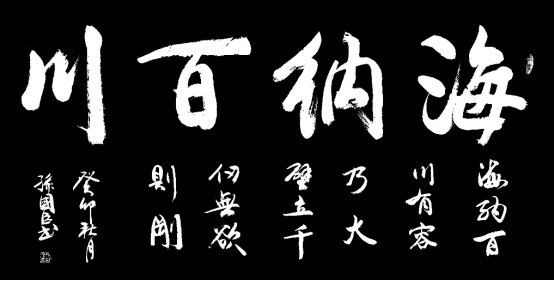 海納百川
海納百
川有容
乃大
壁立千
仞無欲
則剛
癸卯秋月
孫國